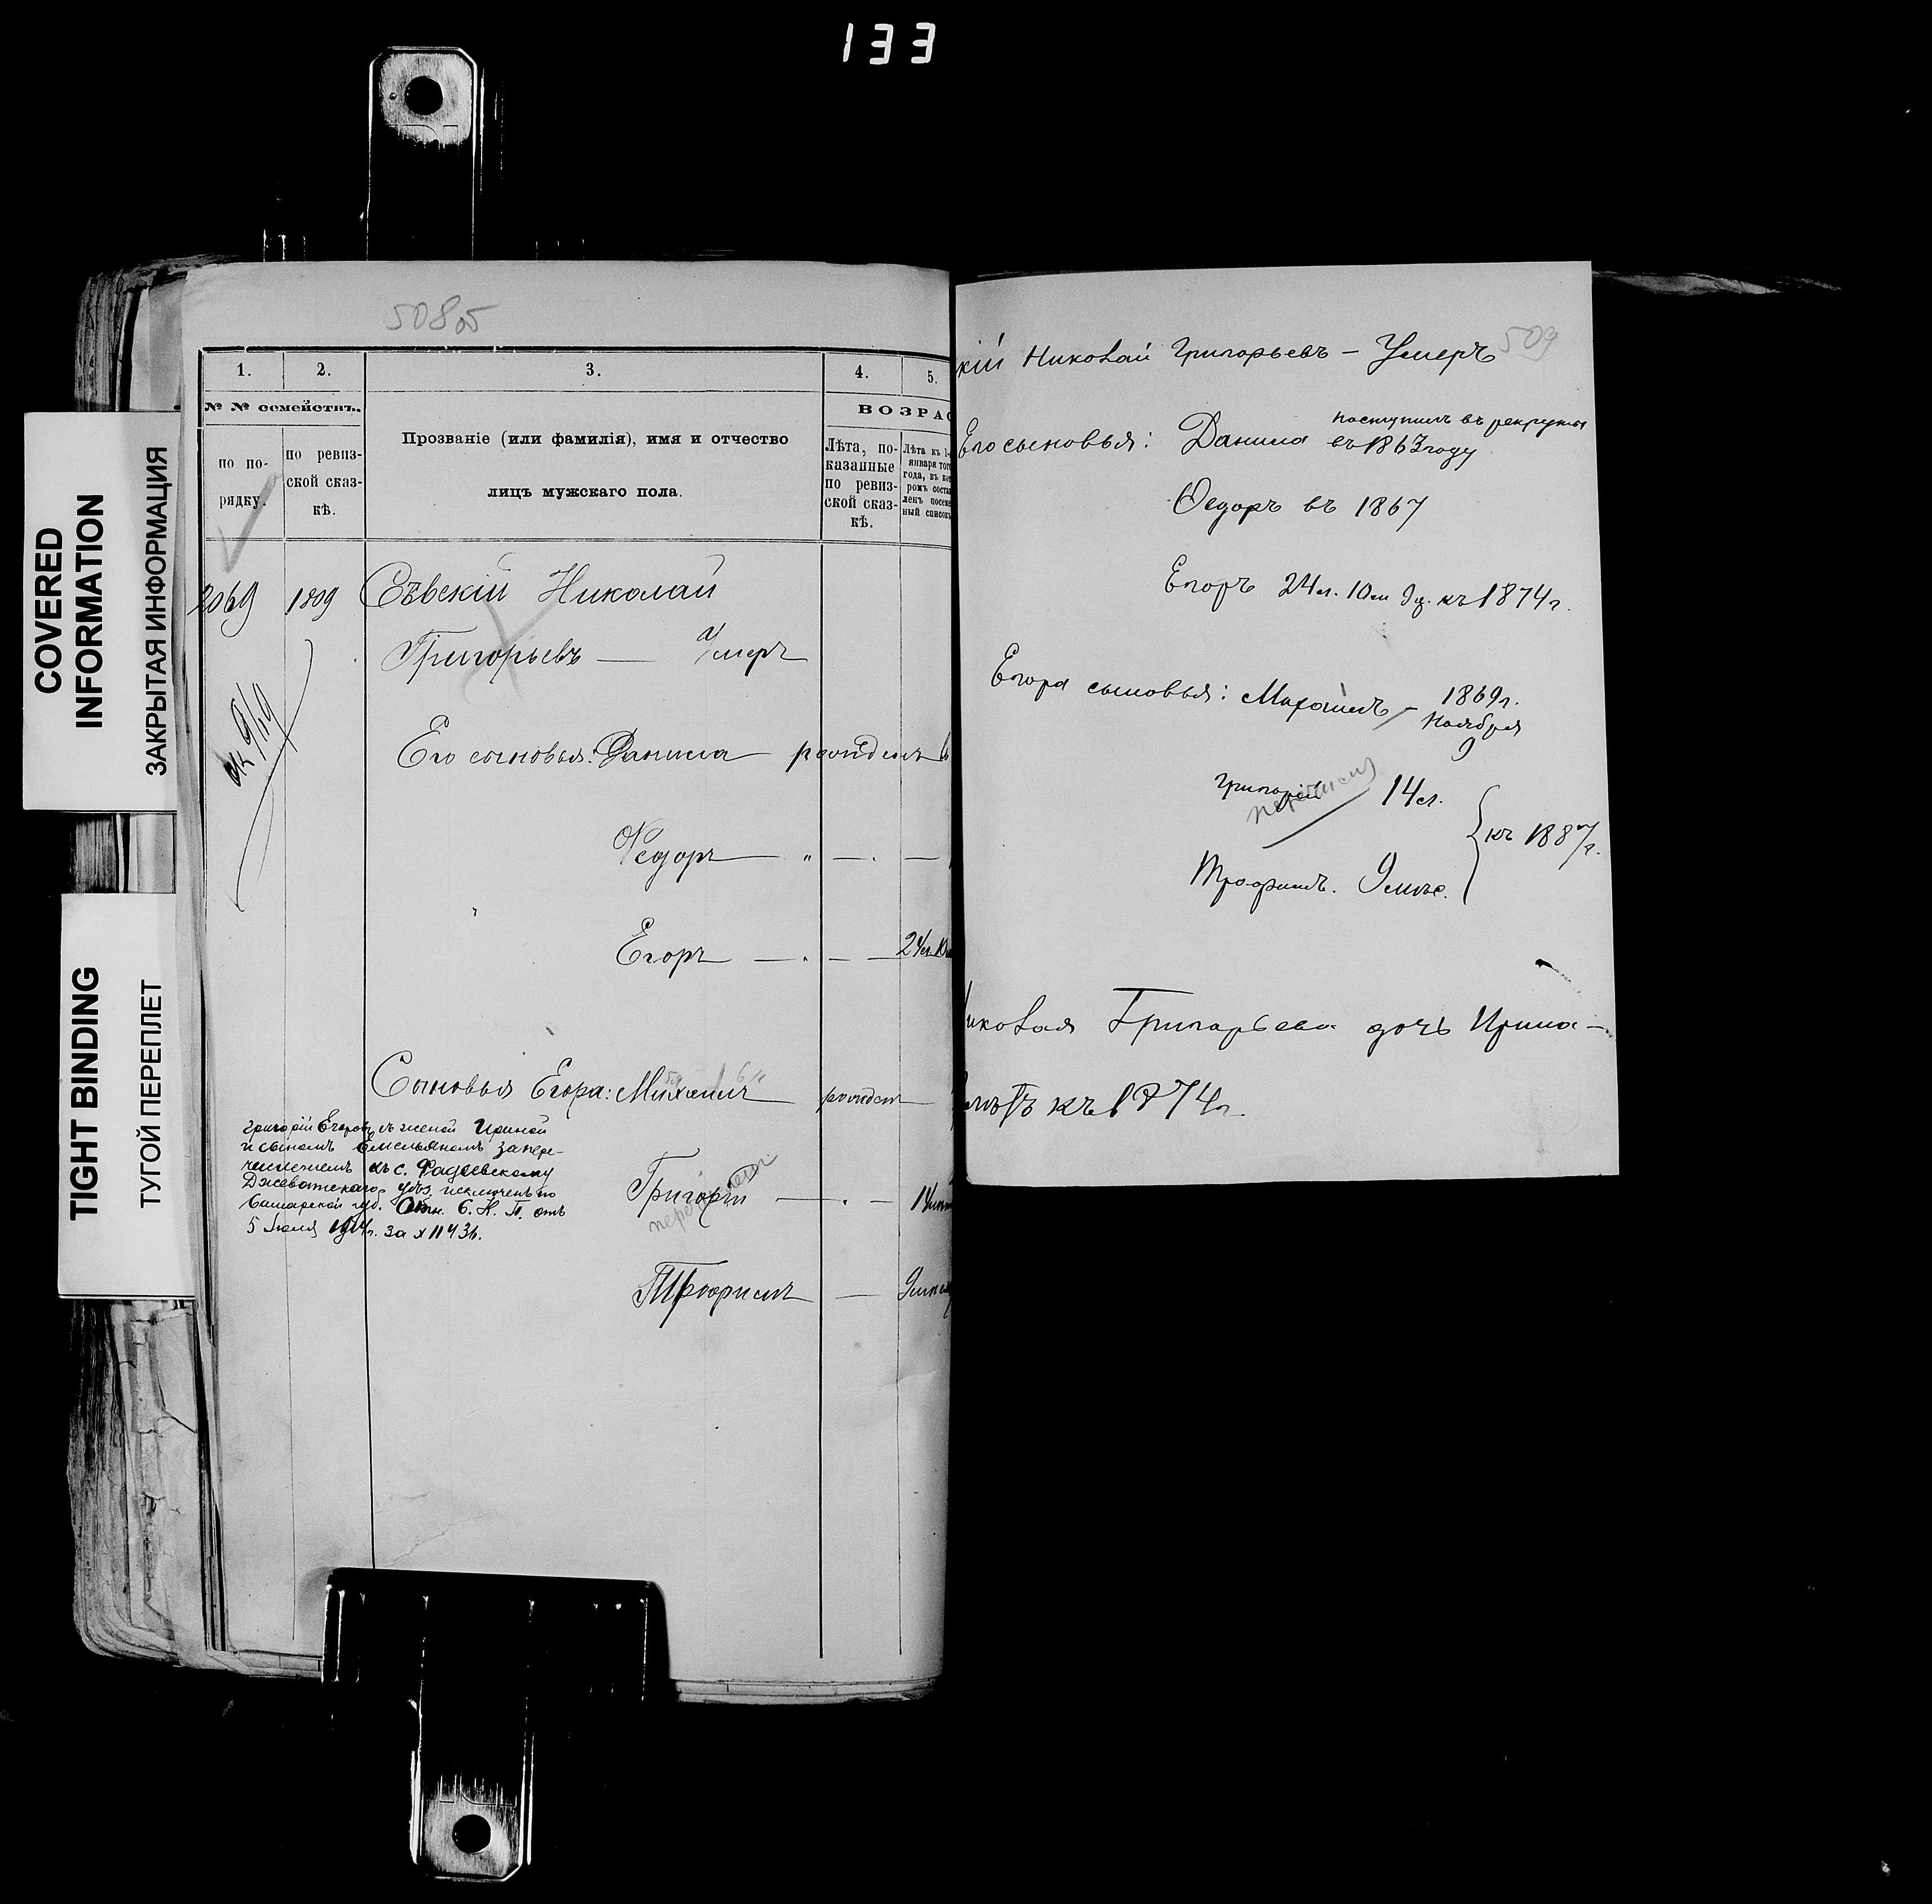 133
COVERED
INFORMATION
ЗАКРЫТАЯ ИНФОРМАЦИЯ
TIGHT BINDING
ТУГОЙ ПЕРЕПЛЕТ
508
1. 2. 3. 4. 5.
№ № семействъ.
ВОЗРАС
по по-
рядку.
по ревиз-
ской сказ-
кѣ.
Прозваніе (или фамилія), имя и отчество
лицъ мужскаго пола.
Лѣта, по-
казанные
по ревиз-
ской сказ-
кѣ.
Лѣта къ 1-
января того
года, въ
ромъ соста
ленъ посем
ный список
2069 1809 Сѣвскій Николай
Григорьевъ — Умеръ
Его сыновья: Данила
Федоръ — " —
Егоръ — 24л. 10
Сыновья Егора: Михаилъ
Григорій Егоровъ съ женой Ириной
и сыномъ Емельяномъ за пере-
численіемъ къ с. Фадѣевскому
уѣз. исключенъ по
Самарской губ. С. К. П. отъ
5 Іюля за № 11436.
Григорій — 14
Трофимъ — 9
509
кій Николай Григорьевъ — Умеръ
Его сыновья: Данила поступилъ въ рекруты
въ 1863 году
Федоръ въ 1867
Егоръ 24 л. 10 м 9 д. къ 1874 г.
Егора сыновья: — 1869 г.
Ноября
9
Григорій 14 л.
къ 1887 г.
Трофимъ. 9 лѣтъ.
иколая Григорьева дочь Ирина —
къ 1874 г.